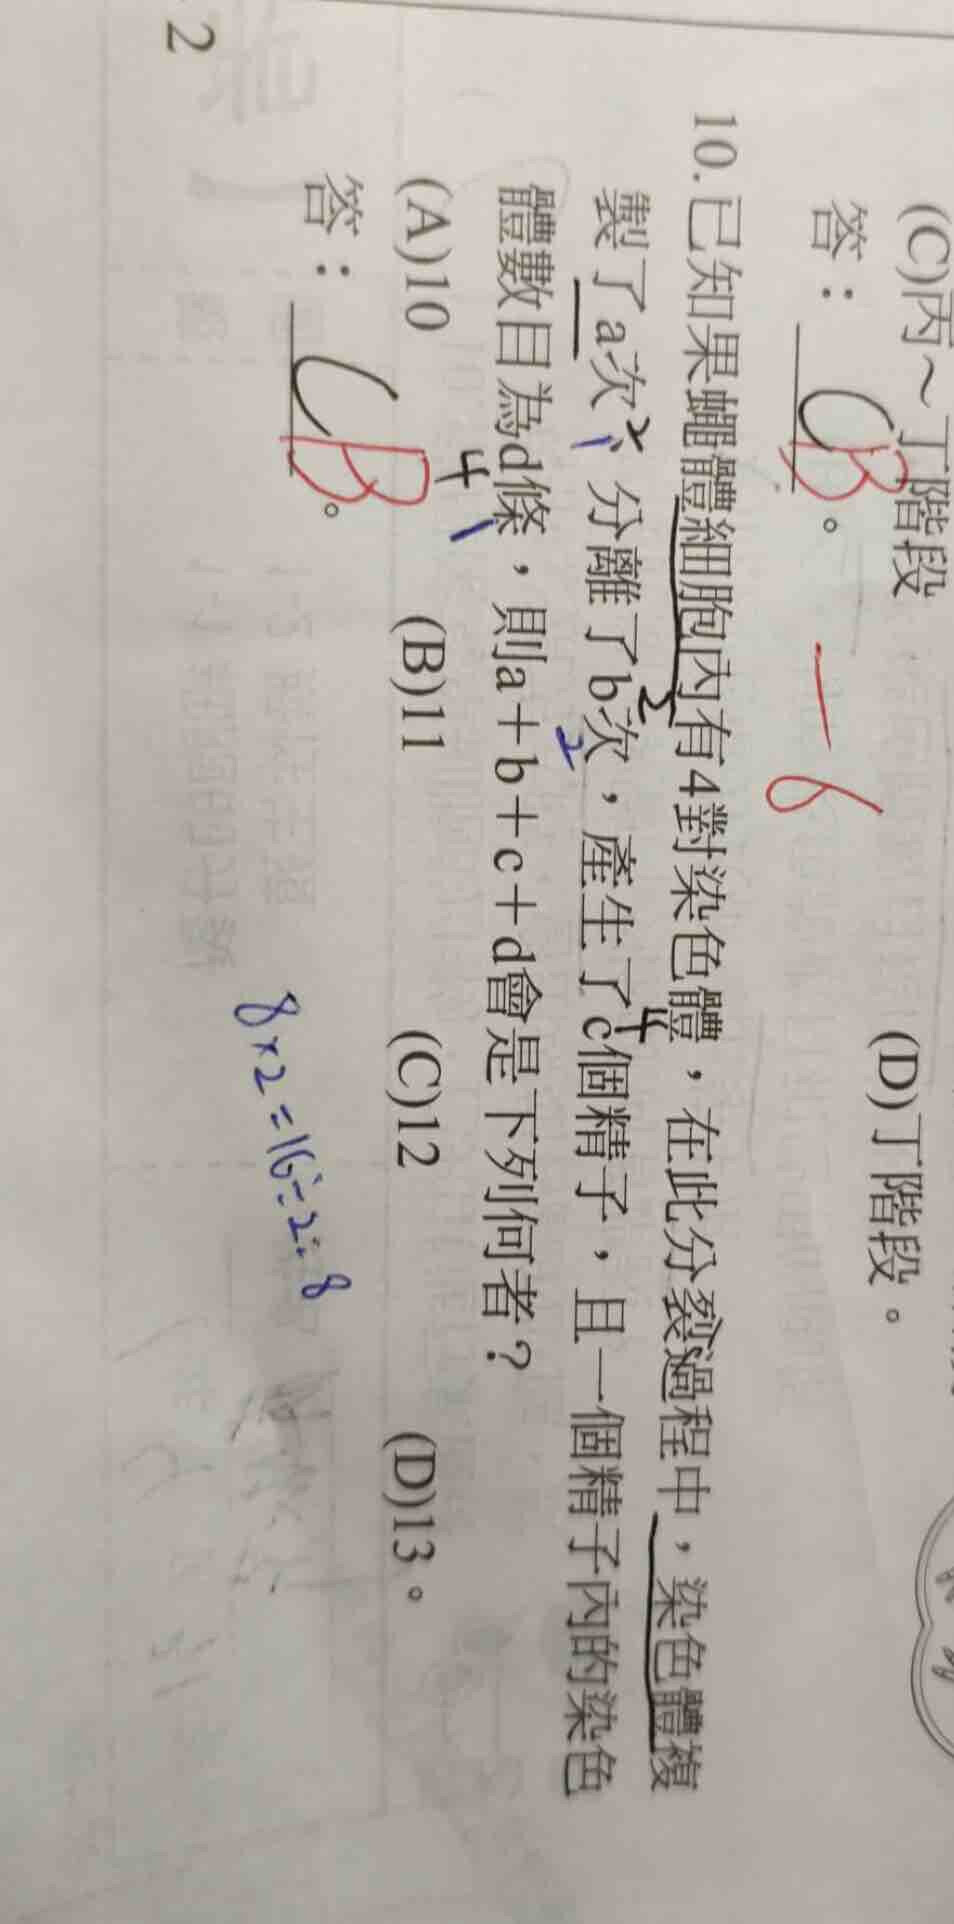 (C)丙～丁階段 (D)丁階段。
答：CB。 一6
10.已知果蠅體細胞內有4對染色體，在此分裂過程中，染色體複
製了a次，分離了b次，產生了c個精子，且一個精子內的染色
2 1 2 2 4
體數目為d條，則a＋b＋c＋d會是下列何者？
4 1
(A)10 (B)11 (C)12 (D)13。
答：CB。
8×2=16÷2=8
2